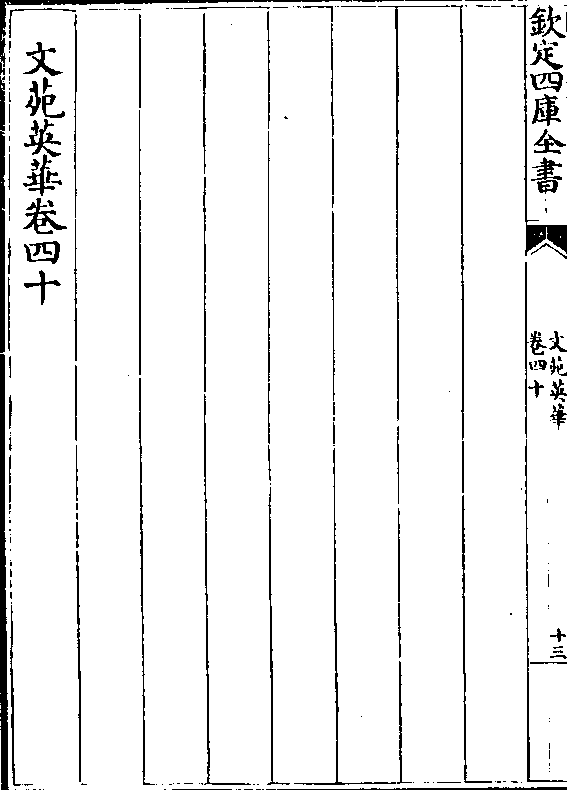 欽定四庫全書
文苑英華
卷四十
十三
文苑英華卷四十